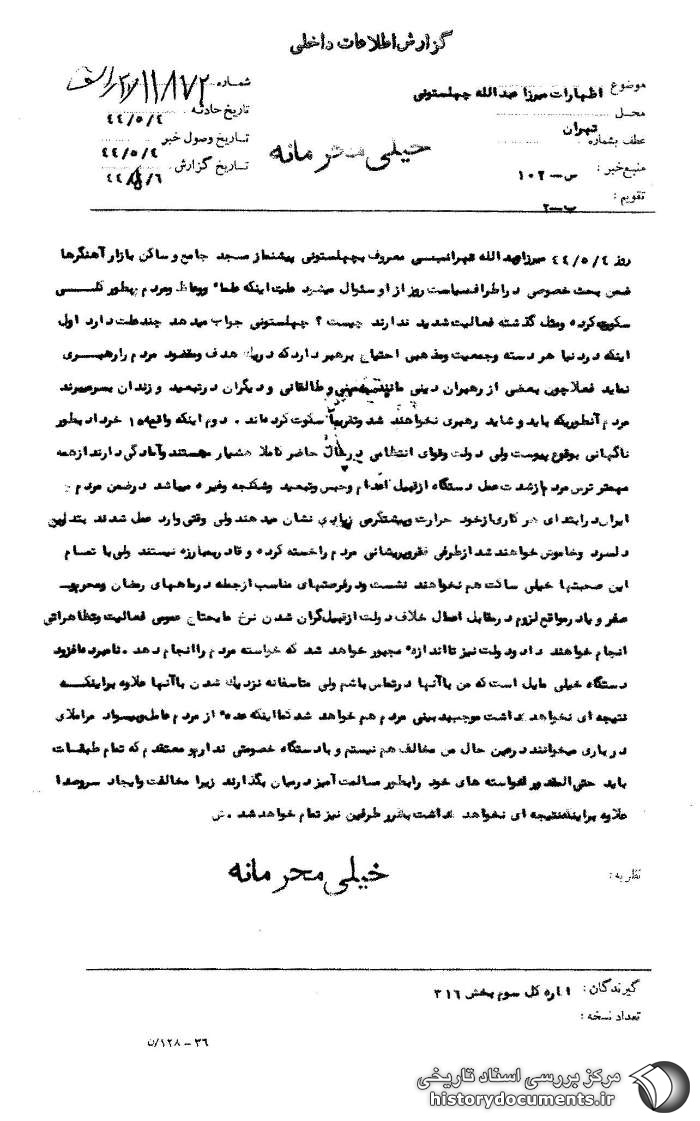 گزارش اطلاعات داخلی
موضوع : اظهارات میرزا عبدالله چهلستونی
محل : تهران
عطف بشماره :
منبع خبر : س – ۱۰۲
تقویم : ب – ۲
شماره ۱۱۸۷۲
تاریخ حادثه ۴۴/۵/۴
تاریخ وصول خبر ۴۴/۵/۴
تاریخ گزارش ۴۴/۵/۶
خیلی محرمانه
روز ۴۴/۵/۴ میرزا عبدالله تهرانی معروف بچهلستونی پیشنماز مسجد جامع و ساکن بازار آهنگرها
ضمن بحث خصوصی در اطراف سیاست روز از او سئوال میشود علت اینکه علماء و وعاظ و مردم بطور کلی
سکوت کرده و مثل گذشته فعالیت شدید ندارند چیست ؟ چهلستونی جواب میدهد چند علت دارد اول
اینکه در دنیا هر دسته و جمعیت و مذهبی احتیاج برهبر دارد که در یک هدف و مقصود مردم را رهبری
نماید فعلا چون بعضی از رهبران دینی مانند خمینی و طالقانی و دیگران در تبعید و زندان بسر میبرند
مردم آنطوریکه باید و شاید رهبری نخواهند شد و تقریبا سکوت کرده‌اند . دوم اینکه واقعه ۱۵ خرداد بطور
ناگهانی بوقوع پیوست ولی دولت و قوای انتظامی در حال حاضر کاملا هشیار هستند و آمادگی دارند از همه
مهمتر ترس مردم از شدت عمل دستگاه از قبیل اعدام و حبس و تبعید و شکنجه و غیره میباشد در ضمن مردم
ایران در ابتدای هر کاری از خود حرارت و پشتگرمی زیادی نشان میدهند ولی وقتی وارد عمل شدند بتدریج
دلسرد و خاموش خواهند شد از طرفی فقر و پریشانی مردم را خسته کرده و قادر بمبارزه نیستند ولی با تمام
این صحبتها خیلی ساکت هم نخواهند نشست و در فرصتهای مناسب از جمله در ماههای رمضان و محرم و
صفر و یا در مواقع لزوم در مقابل اعمال خلاف دولت از قبیل گران شدن نرخ مایحتاج عمومی فعالیت و تظاهراتی
انجام خواهند داد و دولت نیز تا اندازه مجبور خواهد شد که خواسته مردم را انجام دهد . نامبرده افزود
دستگاه خیلی مایل است که من با آنها در تماس باشم ولی متاسفانه نزدیک شدن با آنها علاوه بر اینکه
نتیجه ای نخواهد داشت موجب بدبینی مردم هم خواهد شد کما اینکه عده از مردم عامل و بیسواد مرا ملای
درباری میخوانند در عین حال من مخالف هم نیستم و با دستگاه خصومتی ندارم و معتقدم که تمام طبقات
باید حتی المقدور خواسته های خود را بطور مسالمت آمیز در میان بگذارند زیرا مخالفت و ایجاد سر و صدا
علاوه بر اینکه نتیجه ای نخواهد داشت بضرر طرفین نیز تمام خواهد شد . ش
نظریه :
خیلی محرمانه
گیرندگان : اداره کل سوم بخش ۳۱۶
تعداد نسخه :
۳۶ – ۱۲۸/ن
مرکز بررسی اسناد تاریخی
historydocuments.ir